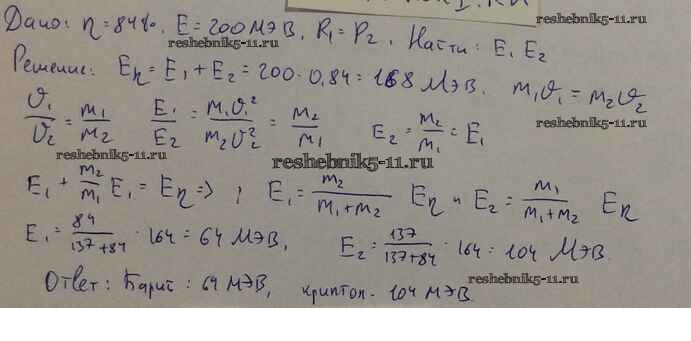 Дано: η = 84%. E = 200 МэВ, P₁ = P₂. Найти: E₁ E₂
reshebnik5-11.ru
Решение: Eη = E₁ + E₂ = 200 · 0,84 = 168 МэВ. m₁υ₁ = m₂υ₂
υ₁/υ₂ = m₁/m₂ E₁/E₂ = m₁υ₁²/m₂υ₂² = m₂/m₁ E₂ = m₂/m₁ = E₁
reshebnik5-11.ru
reshebnik5-11.ru
reshebnik5-11.ru
E₁ + m₂/m₁ E₁ = Eη => ; E₁ = m₂/(m₁+m₂) Eη и E₂ = m₁/(m₁+m₂) Eη
E₁ = 84/(137+84) · 164 = 64 МэВ, E₂ = 137/(137+84) · 164 = 104 МэВ.
reshebnik5-11.ru
Ответ: Барий: 64 МэВ, криптон - 104 МэВ.